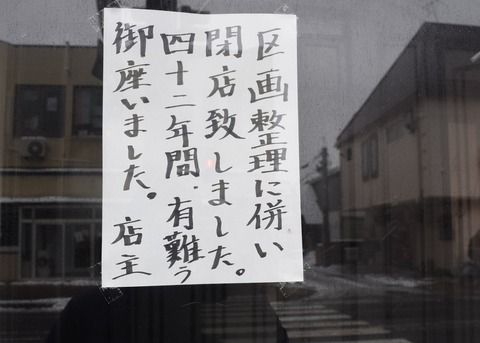 区画整理に併い
閉店致しました。
四十二年間、有難う
御座いました。店主